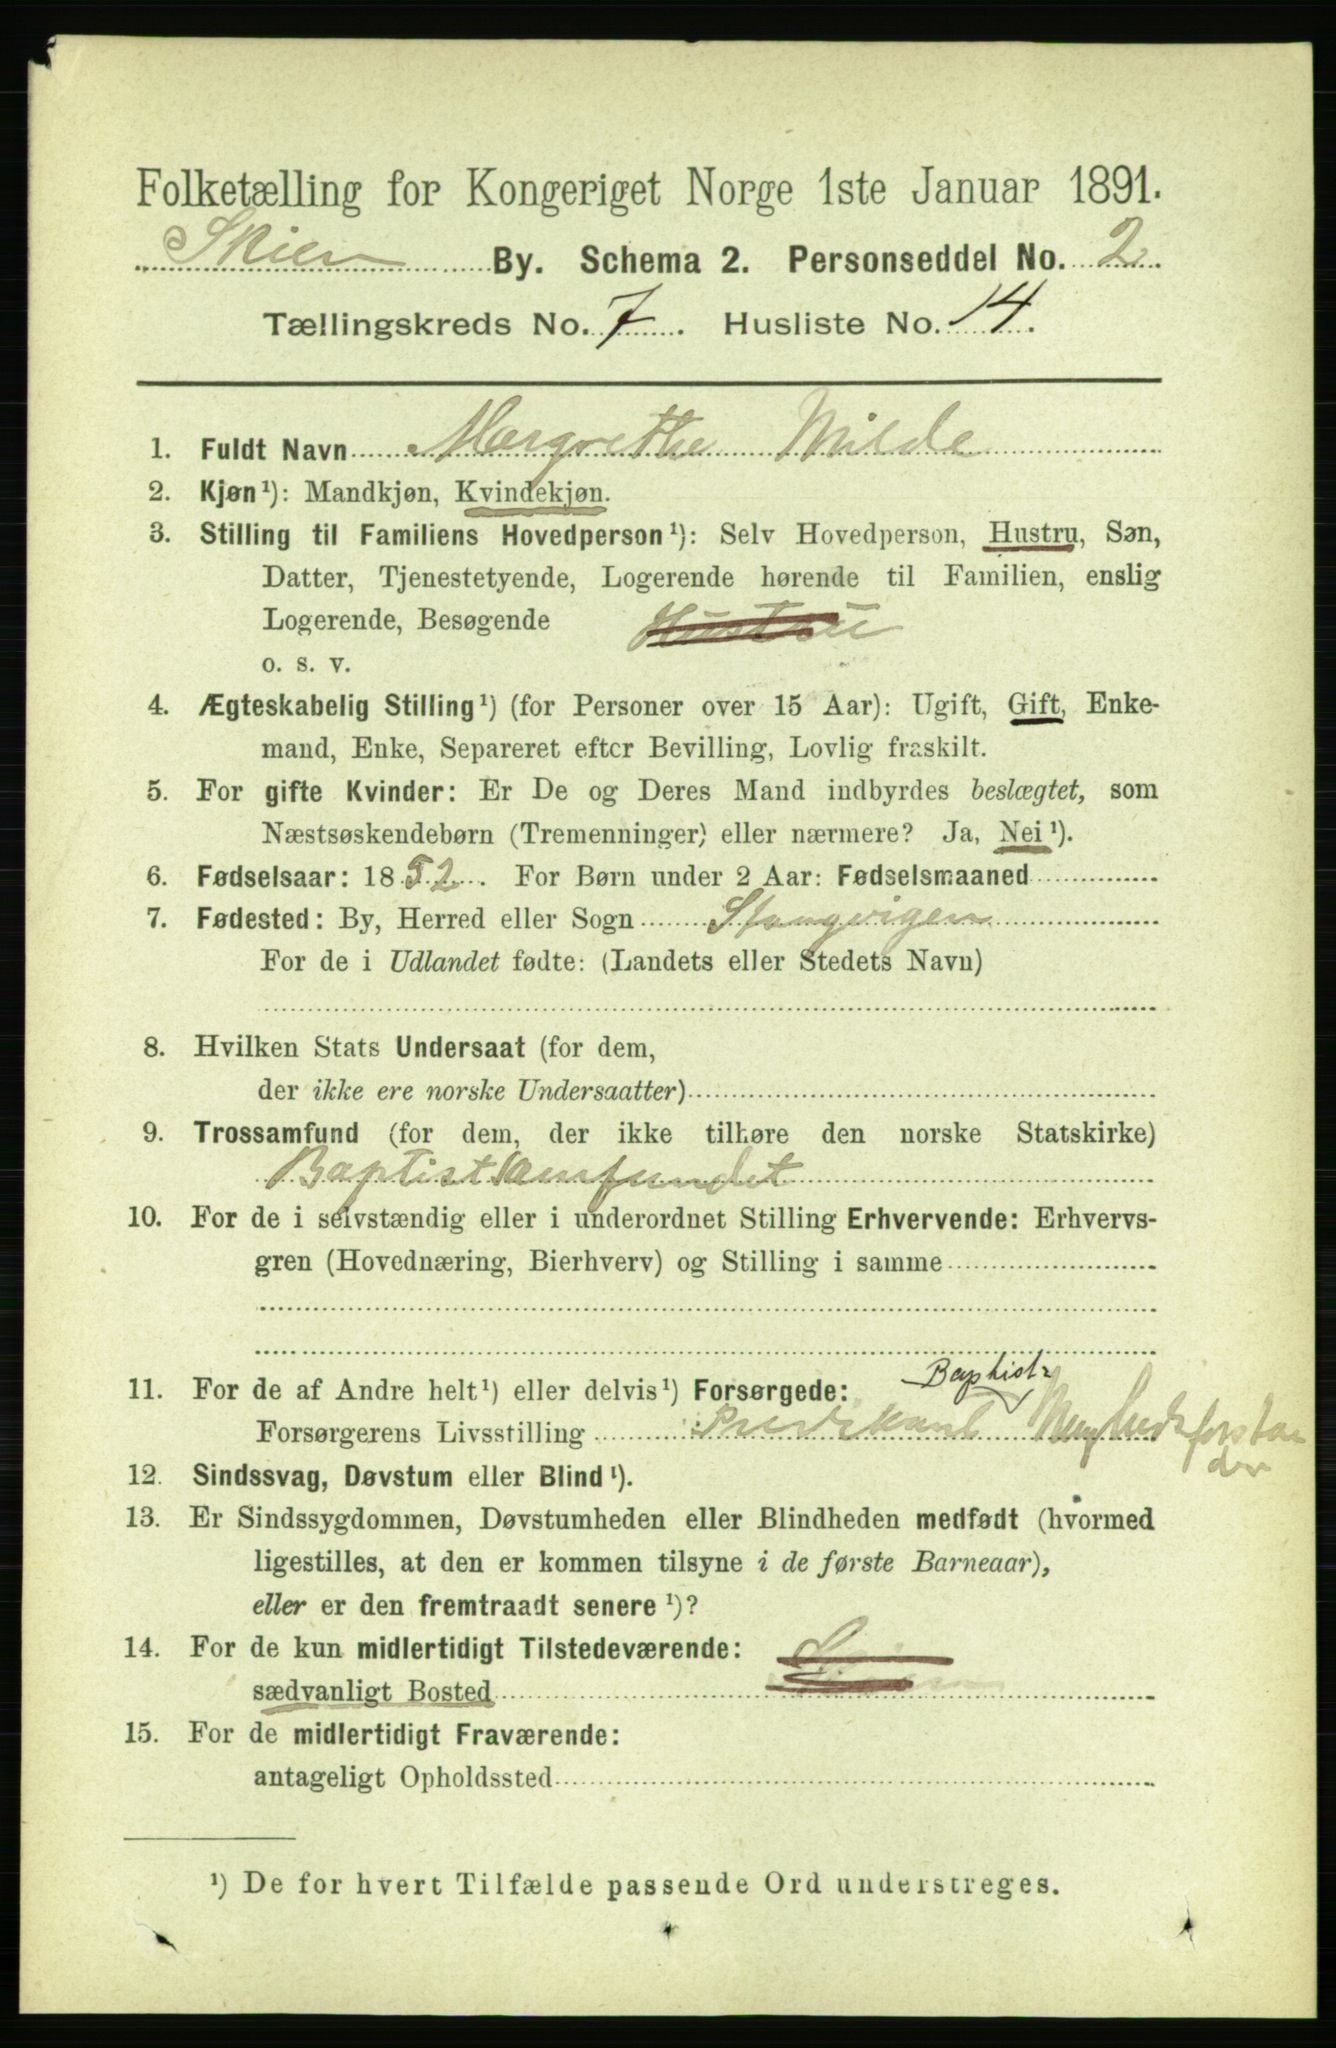 Folketælling for Kongeriget Norge 1ste Januar 1891.
Skien By. Schema 2. Personseddel No. 2.
Tællingskreds No. 7. Husliste No. 14.
1. Fuldt Navn Margrethe Milde
2. Kjøn¹): Mandkjøn, Kvindekjøn.
3. Stilling til Familiens Hovedperson¹): Selv Hovedperson, Hustru, Søn,
Datter, Tjenestetyende, Logerende hørende til Familien, enslig
Logerende, Besøgende Hustru
o. s. v.
4. Ægteskabelig Stilling¹) (for Personer over 15 Aar): Ugift, Gift, Enke-
mand, Enke, Separeret efter Bevilling, Lovlig fraskilt.
5. For gifte Kvinder: Er De og Deres Mand indbyrdes beslægtet, som
Næstsøskendebørn (Tremenninger) eller nærmere? Ja, Nei¹).
6. Fødselsaar: 1852. For Børn under 2 Aar: Fødselsmaaned
7. Fødested: By, Herred eller Sogn Stangvigen
For de i Udlandet fødte: (Landets eller Stedets Navn)
8. Hvilken Stats Undersaat (for dem,
der ikke ere norske Undersaatter)
9. Trossamfund (for dem, der ikke tilhøre den norske Statskirke)
Baptistsamfundet
10. For de i selvstændig eller i underordnet Stilling Erhvervende: Erhvervs-
gren (Hovednæring, Bierhverv) og Stilling i samme
Baptist
11. For de af Andre helt¹) eller delvis¹) Forsørgede:
Forsørgerens Livsstilling Predikant
12. Sindssvag, Døvstum eller Blind¹).
13. Er Sindssygdommen, Døvstumheden eller Blindheden medfødt (hvormed
ligestilles, at den er kommen tilsyne i de første Barneaar),
eller er den fremtraadt senere¹)?
14. For de kun midlertidigt Tilstedeværende:
sædvanligt Bosted
15. For de midlertidigt Fraværende:
antageligt Opholdssted
¹) De for hvert Tilfælde passende Ord understreges.